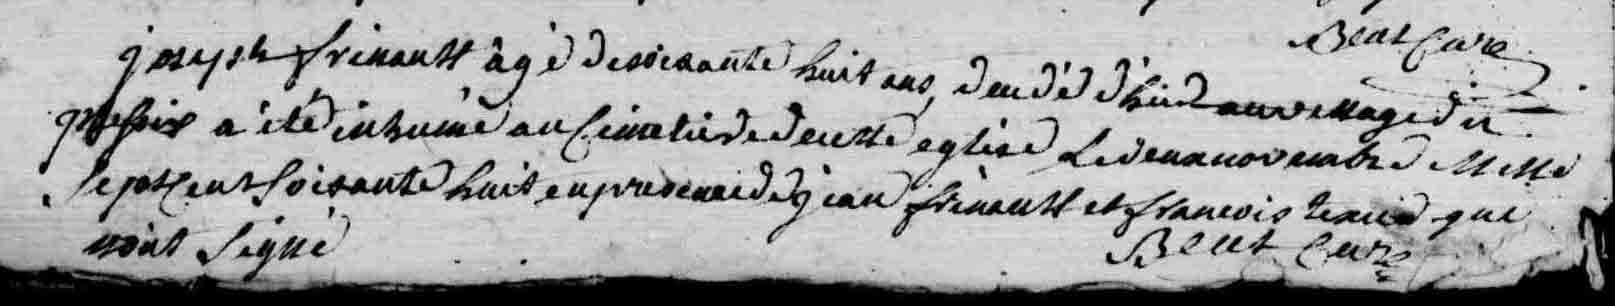 Beat Curé
joseph frinault âgé de soisante huit ans, decédé d'hier au village du
plessix a été inhumé au Cimetiere de cette eglise le deux novembre Mille
Sept Cent Soisante huit en presence de jean frinault et francois qui
n'ont Signé
Beat Curé